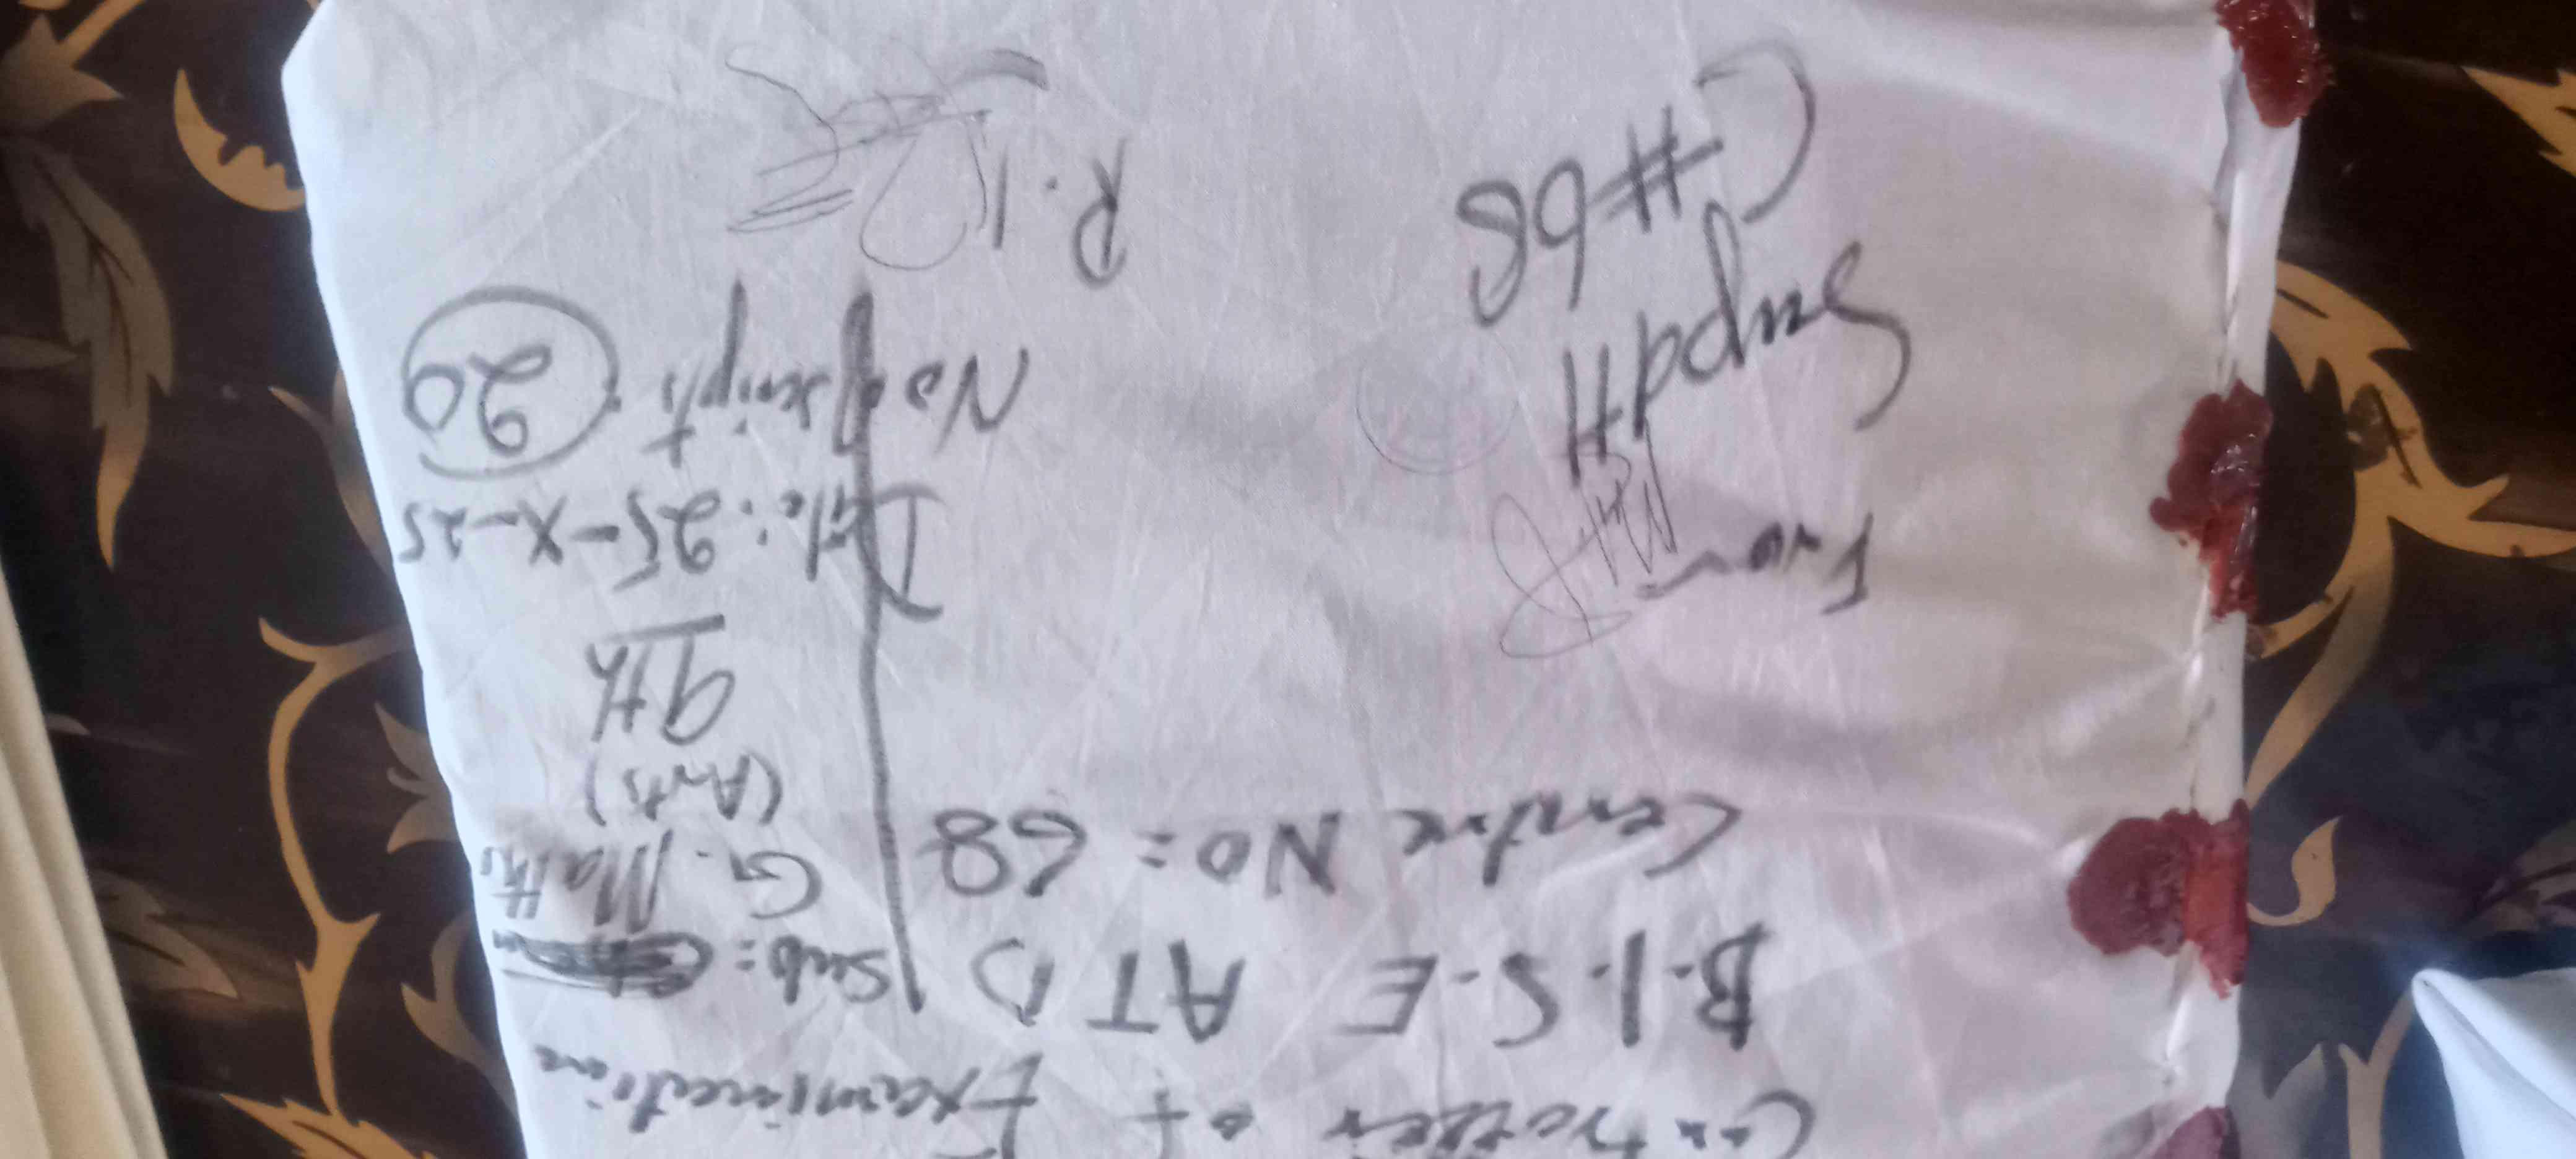 Controller of Examination
B.I.S.E ATD
Centre No: 68
Sub:
G. Maths
(Arts)
9th
Date: 25-X-25
No of scripts
20
From
Supdt
C#68
R.1